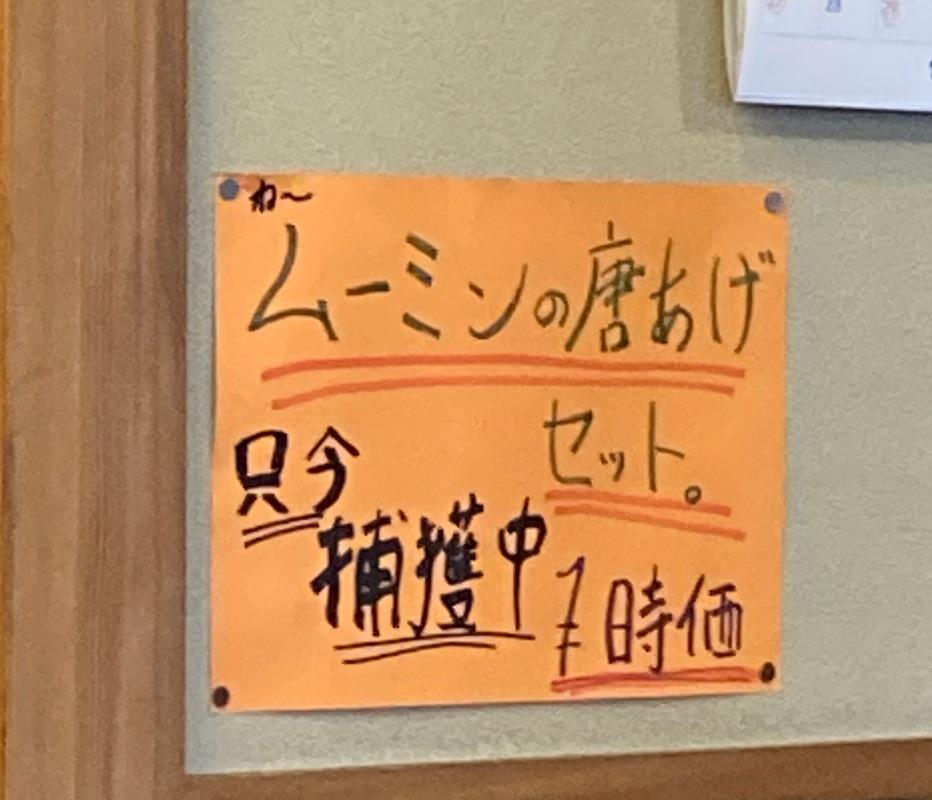 ね〜
ムーミンの唐あげ
セット。
只今
捕獲中
時価